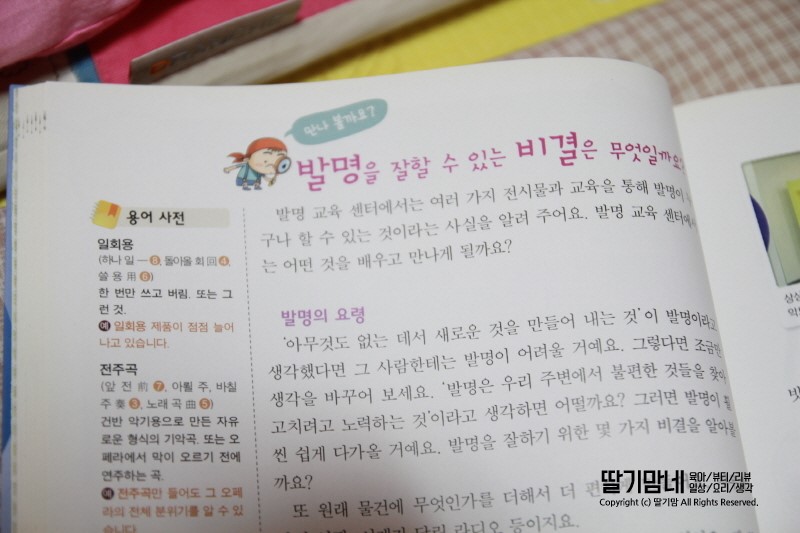 만나 볼까요?
발명을 잘할 수 있는 비결은 무엇일까요?
발명 교육 센터에서는 여러 가지 전시물과 교육을 통해 발명이
구나 할 수 있는 것이라는 사실을 알려 주어요. 발명 교육 센터에서
는 어떤 것을 배우고 만나게 될까요?
용어 사전
일회용
(하나 일 一 8, 돌아올 회 回 4,
쓸 용 用 6)
한 번만 쓰고 버림. 또는 그
런 것.
예 일회용 제품이 점점 늘어
나고 있습니다.
전주곡
(앞 전 前 7, 아뢸 주, 바칠
주 奏 3, 노래 곡 曲 5)
건반 악기용으로 만든 자유
로운 형식의 기악곡. 또는 오
페라에서 막이 오르기 전에
연주하는 곡.
예 전주곡만 들어도 그 오페
라의 전체 분위기를 알 수 있
습니다.
발명의 요령
'아무것도 없는 데서 새로운 것을 만들어 내는 것'이 발명이라고
생각했다면 그 사람한테는 발명이 어려울 거예요. 그렇다면 조금만
생각을 바꾸어 보세요. '발명은 우리 주변에서 불편한 것들을 찾아
고치려고 노력하는 것'이라고 생각하면 어떨까요? 그러면 발명이 훨
씬 쉽게 다가올 거예요. 발명을 잘하기 위한 몇 가지 비결을 알아볼
까요?
또 원래 물건에 무엇인가를 더해서 더
라디오 등이지요.
딸기맘네 육아/뷰티/리뷰
일상/요리/생각
Copyright (c) 딸기맘 All Rights Reserved.